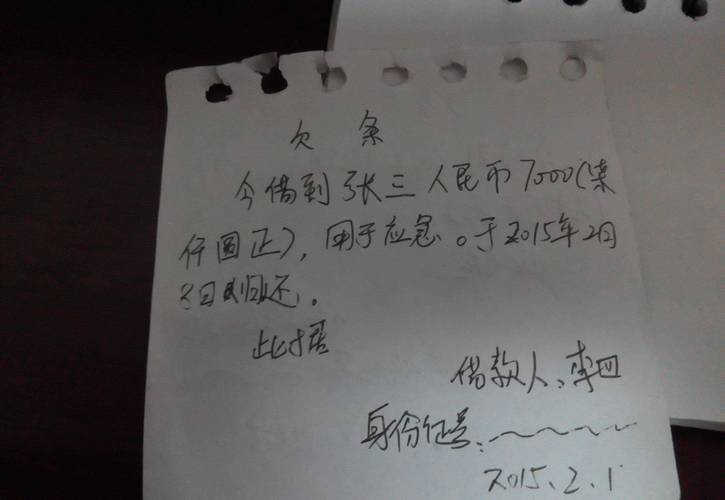 欠条
今借到张三人民币7000(柒
仟圆正),用于应急。于2015年2月
8日归还。
此据
借款人:李四
身份证号:
2015.2.1